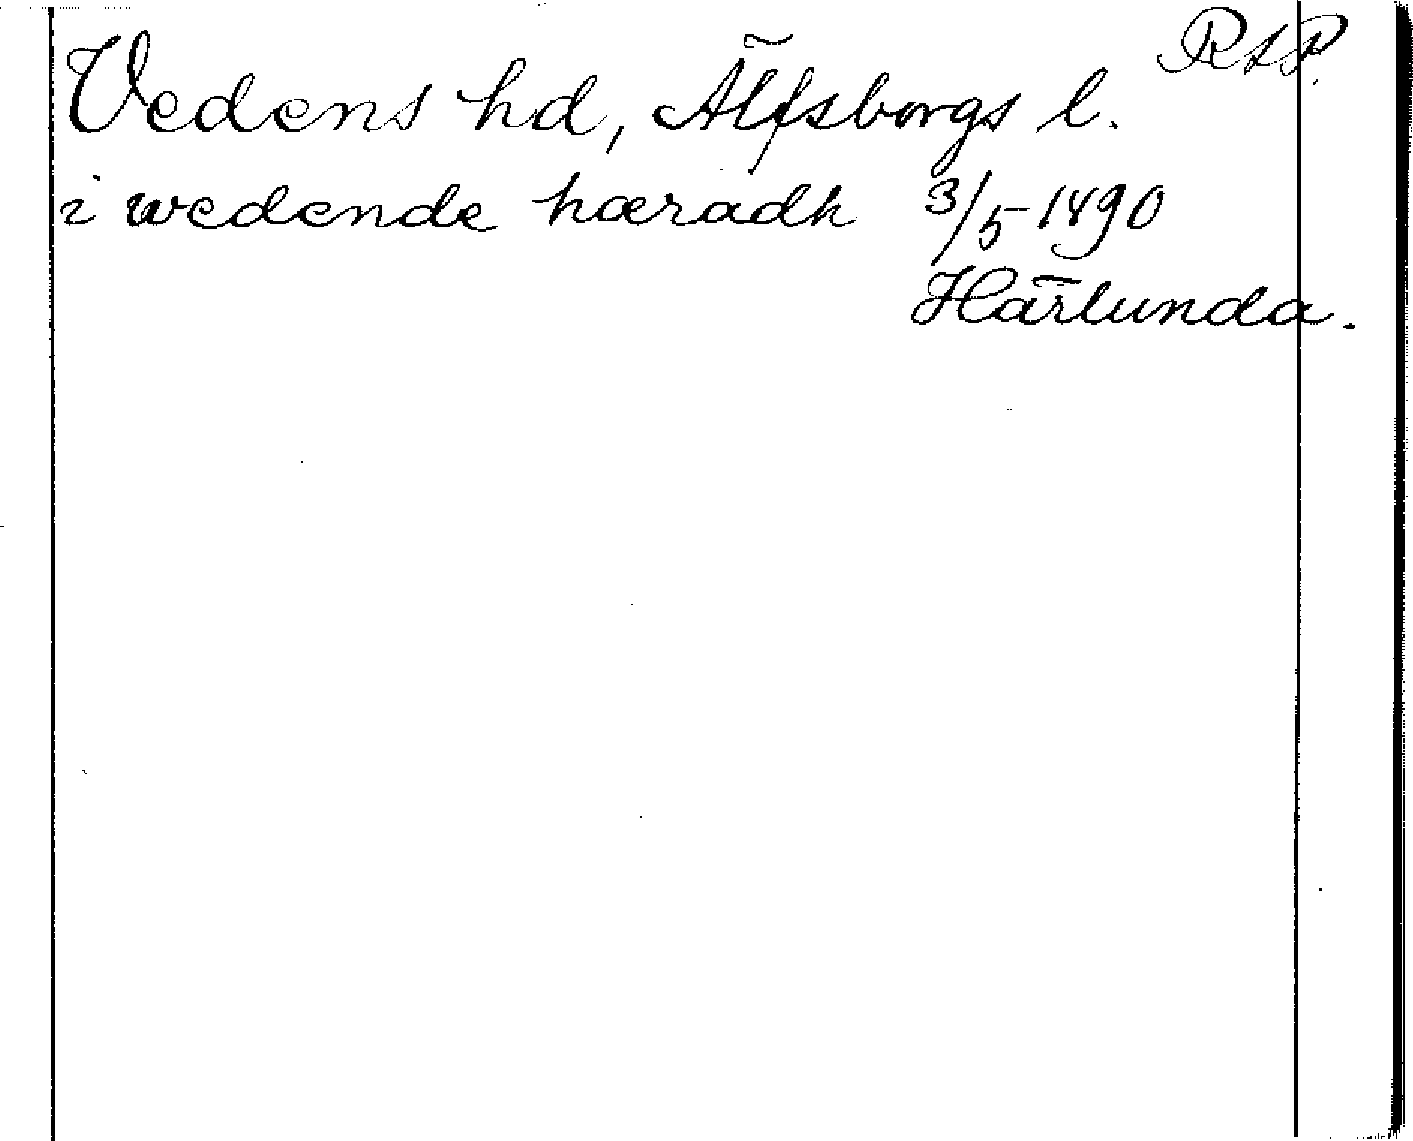 Vedens hd, Älfsborgs l. RAP.
i wedende hæradh 3/5 1490
Härlunda.